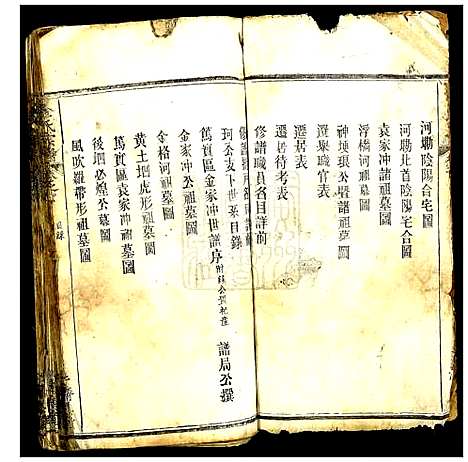 河塝陰陽合宅圖
河塝北首陰陽宅合圖
袁家冲諸祖墓圖
浮橋河祖墓圖
神埂瑣公暨諸祖墓圖
選舉職官表
遷居表
遷居待考表
修譜職員名目詳前
珂公支下世系目錄
篤實區金家冲世譜序
諸局公撰
金家冲公祖墓圖
金格河祖墓圖
黄土垇虎形祖墓圖
篤實區袁家冲祖墓圖
後垇必煌公墓圖
風吹羅帶形祖墓圖
目錄